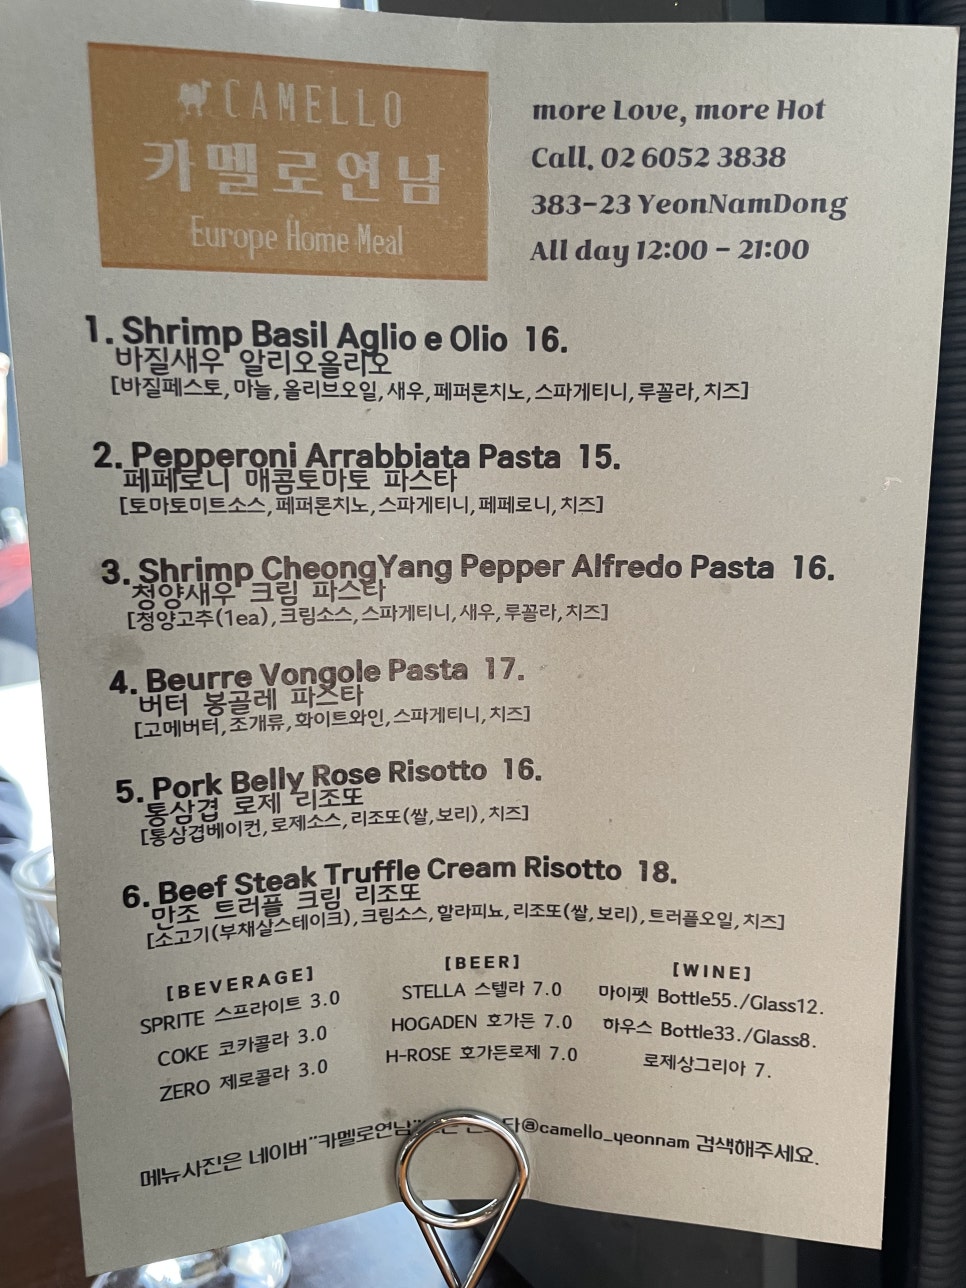 CAMELLO
카멜로연남
Europe Home Meal
more Love, more Hot
Call. 02 6052 3838
383-23 YeonNamDong
All day 12:00 - 21:00
1. Shrimp Basil Aglio e Olio 16.
바질새우 알리오올리오
[바질페스토,마늘,올리브오일,새우,페퍼론치노,스파게티니,루꼴라,치즈]
2. Pepperoni Arrabbiata Pasta 15.
페페로니 매콤토마토 파스타
[토마토미트소스,페퍼론치노,스파게티니,페페로니,치즈]
3. Shrimp CheongYang Pepper Alfredo Pasta 16.
청양새우 크림 파스타
[청양고추(1ea),크림소스,스파게티니,새우,루꼴라,치즈]
4. Beurre Vongole Pasta 17.
버터 봉골레 파스타
[고메버터,조개류,화이트와인,스파게티니,치즈]
5. Pork Belly Rose Risotto 16.
통삼겹 로제 리조또
[통삼겹베이컨,로제소스,리조또(쌀,보리),치즈]
6. Beef Steak Truffle Cream Risotto 18.
만조 트러플 크림 리조또
[소고기(부채살스테이크),크림소스,할라피뇨,리조또(쌀,보리),트러플오일,치즈]
[BEVERAGE]
SPRITE 스프라이트 3.0
COKE 코카콜라 3.0
ZERO 제로콜라 3.0
[BEER]
STELLA 스텔라 7.0
HOGADEN 호가든 7.0
H-ROSE 호가든로제 7.0
[WINE]
마이펫 Bottle55./Glass12.
하우스 Bottle33./Glass8.
로제상그리아 7.
메뉴사진은 네이버"카멜로연남" @camello_yeonnam 검색해주세요.